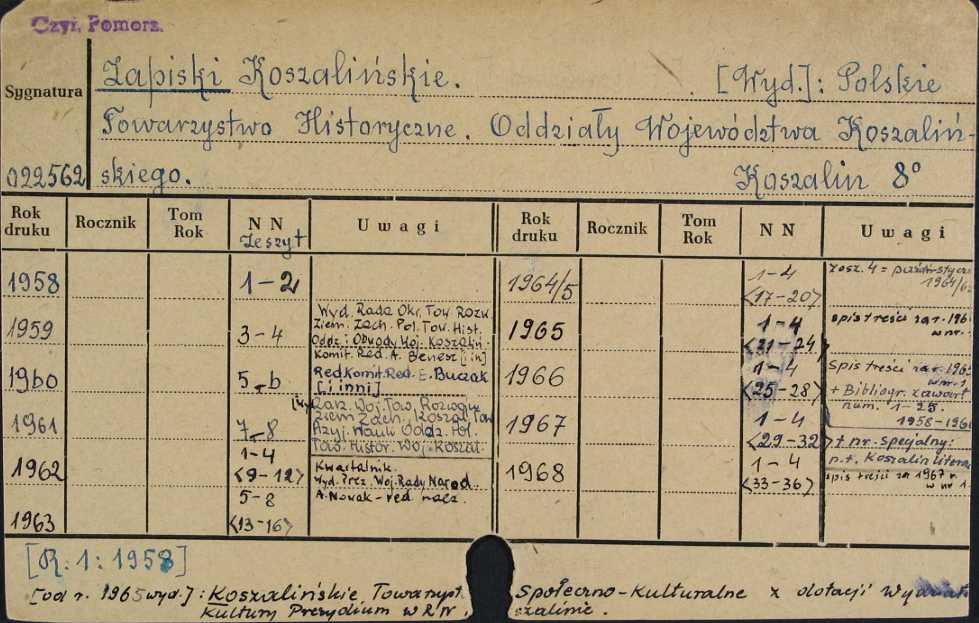 Czyt. Pomorz.
Sygnatura
022562
Zapiski Koszalińskie. [Wyd.]: Polskie
Towarzystwo Historyczne. Oddziały Województwa Koszaliń-
skiego. Koszalin 8°
Rok druku | Rocznik | Tom Rok | N N Zeszyt | Uwagi | Rok druku | Rocznik | Tom Rok | N N | Uwagi
1958 1-2
1959 3-4 Wyd. Rada Okr. Tow. Rozw.
Ziem. Zach. Pol. Tow. Hist.
Oddz. i Obwody Woj. Koszaliń-
Komit. Red. A. Benesz [i in]
1960 5-6 Red Komit. Red. E. Buczak
[i inni]
1961 7-8 Zarz. Woj. Tow. Rozwoju
Ziem Zach. Koszal. Tow.
Przyj. nauk Oddz. Pol.
Tow. Histor. Woj. Koszal.
1962 1-4
<9-12> Kwartalnik.
Wyd. Prez. Woj. Rady Narod.
A. Nowak - red. nacz.
1963 5-8
<13-16>
1964/5 1-4
<17-20> zesz. 4 =
1964/65
1965 1-4
<21-24> spis treści za r.
w nr.
1966 1-4
<25-28> Spis treści za r. 1965
w nr. 1
+ Bibliogr. zawart.
num. 1-25.
1958-196
1967 1-4
<29-32> + nr. specjalny:
p.t. Koszalin litera
1968 1-4
<33-36> spis treści za 1967 r.
w nr 1.
[R. 1: 1958]
[od r. 1965 wyd.]: Koszalińskie Towarzyst Społeczno-Kulturalne z dotacji
Kultury Prezydium WRN, szalinie.